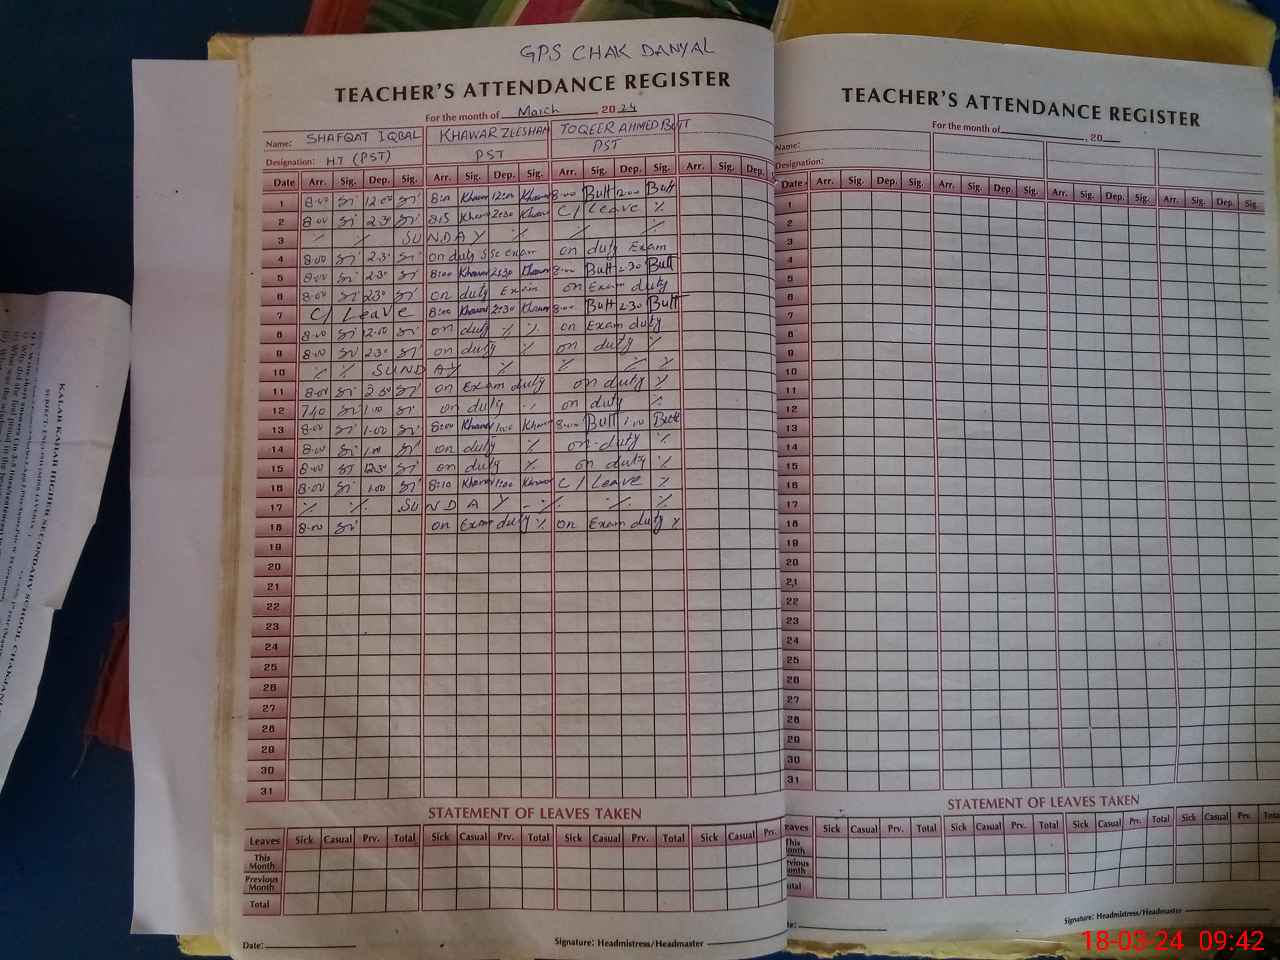 GPS CHAK DANYAL
TEACHER'S ATTENDANCE REGISTER
For the month of March 2024
Name: SHAFQAT IQBAL KHAWAR ZEESHAN TOQEER AHMED BUTT
Designation: HT (PST) PST PST
Date Arr. Sig. Dep. Sig. Arr. Sig. Dep. Sig. Arr. Sig. Dep. Sig. Arr. Sig. Dep.
1 8:00 12:00 8:00 Khawar 12:00 Khawar 8:00 Butt 12:00 Butt
2 8:00 2:30 8:15 Khawar 2:30 Khawar C/ Leave %
3 % % SUNDAY % % %
4 8:00 2:30 on duty SSC exam on duty Exam
5 8:00 2:30 8:00 Khawar 2:30 Khawar 8:00 Butt 2:30 Butt
6 8:00 2:30 on duty Exam on Exam duty
7 C/ Leave 8:00 Khawar 2:30 Khawar 8:00 Butt 2:30 Butt
8 8:00 12:00 on duty % % on Exam duty
9 8:00 2:30 on duty % on duty %
10 % % SUNDAY % % % %
11 8:00 2:30 on Exam duty on duty %
12 7:40 1:00 on duty % on duty %
13 8:00 1:00 8:00 Khawar 1:00 Khawar 8:00 Butt 1:00 Butt
14 8:00 1:00 on duty % on duty %
15 8:00 12:30 on duty % on duty %
16 8:00 1:00 8:10 Khawar 1:00 Khawar C/ Leave %
17 % % SUNDAY % % %
18 8:00 on Exam duty % on Exam duty %
19
20
21
22
23
24
25
26
27
28
29
30
31
STATEMENT OF LEAVES TAKEN
Leaves Sick Casual Prv. Total Sick Casual Prv. Total Sick Casual Prv. Total Sick Casual Prv.
This Month
Previous Month
Total
Date:
Signature: Headmistress/Headmaster
TEACHER'S ATTENDANCE REGISTER
For the month of , 20
Name:
Designation:
Date Arr. Sig. Dep. Sig. Arr. Sig. Dep. Sig. Arr. Sig. Dep. Sig. Arr. Sig. Dep. Sig.
1
2
3
4
5
6
7
8
9
10
11
12
13
14
15
16
17
18
19
20
21
22
23
24
25
26
27
28
29
30
31
STATEMENT OF LEAVES TAKEN
Leaves Sick Casual Prv. Total Sick Casual Prv. Total Sick Casual Prv. Total Sick Casual Prv. Total
This Month
Previous Month
Total
Date:
Signature: Headmistress/Headmaster
KALAR KAHAR HIGHER SECONDARY SCHOOL
18-03-24 09:42